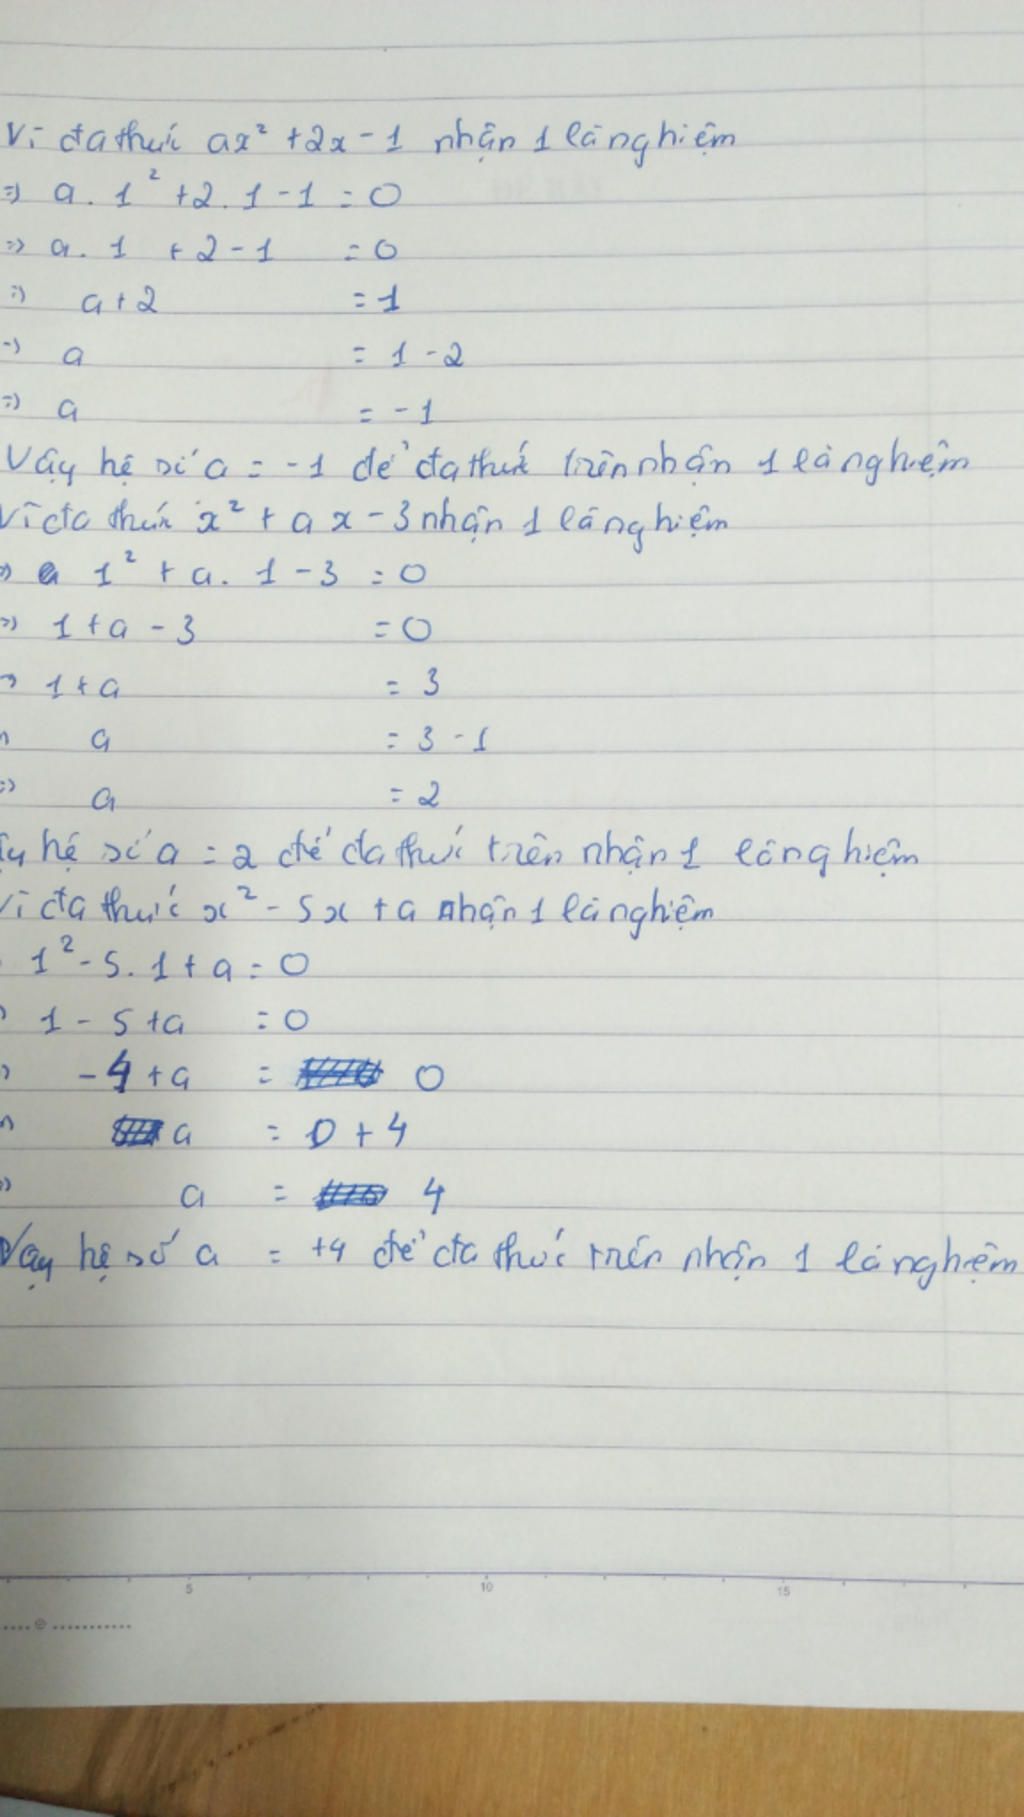 Vì đa thức ax² + 2x - 1 nhận 1 là nghiệm
=> a. 1² + 2. 1 - 1 = 0
=> a. 1 + 2 - 1 = 0
=> a + 2 = 1
=> a = 1 - 2
=> a = -1
Vậy hệ số a = -1 để đa thức trên nhận 1 là nghiệm
Vì đa thức x² + a x - 3 nhận 1 là nghiệm
=> 1² + a. 1 - 3 = 0
=> 1 + a - 3 = 0
=> 1 + a = 3
a = 3 - 1
=> a = 2
ậy hệ số a = 2 để đa thức trên nhận 1 là nghiệm
Vì đa thức x² - 5x + a nhận 1 là nghiệm
1² - 5. 1 + a = 0
1 - 5 + a = 0
-4 + a = 0
a = 0 + 4
a = 4
Vậy hệ số a = +4 để đa thức trên nhận 1 là nghiệm
5 10 15